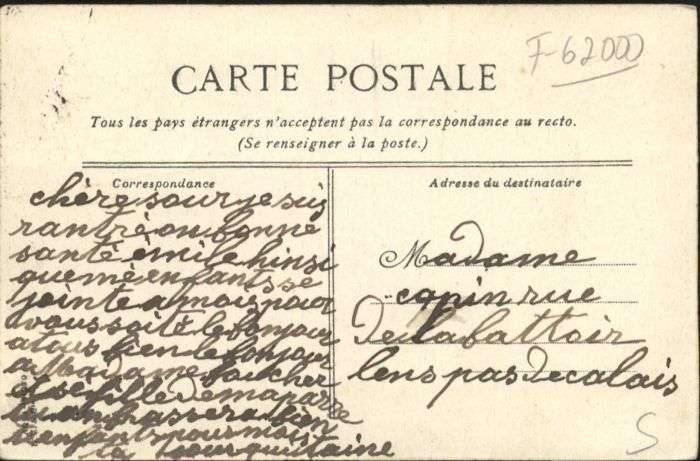 F-62000
CARTE POSTALE
Tous les pays étrangers n'acceptent pas la correspondance au recto.
(Se renseigner à la poste.)
Correspondance
chère sour je sui
rantré on bonne
santé émile hinsi
que mé enfants se
jointe a moi pour
vous soité le bonjour
a tous bien le bonjour
a Madame foucher
et sé fille de ma par
tu anbrassera bien
enfants pour moi
ta sour
Adresse du destinataire
Madame
copin rue
De labattoir
lens pas de calais
S